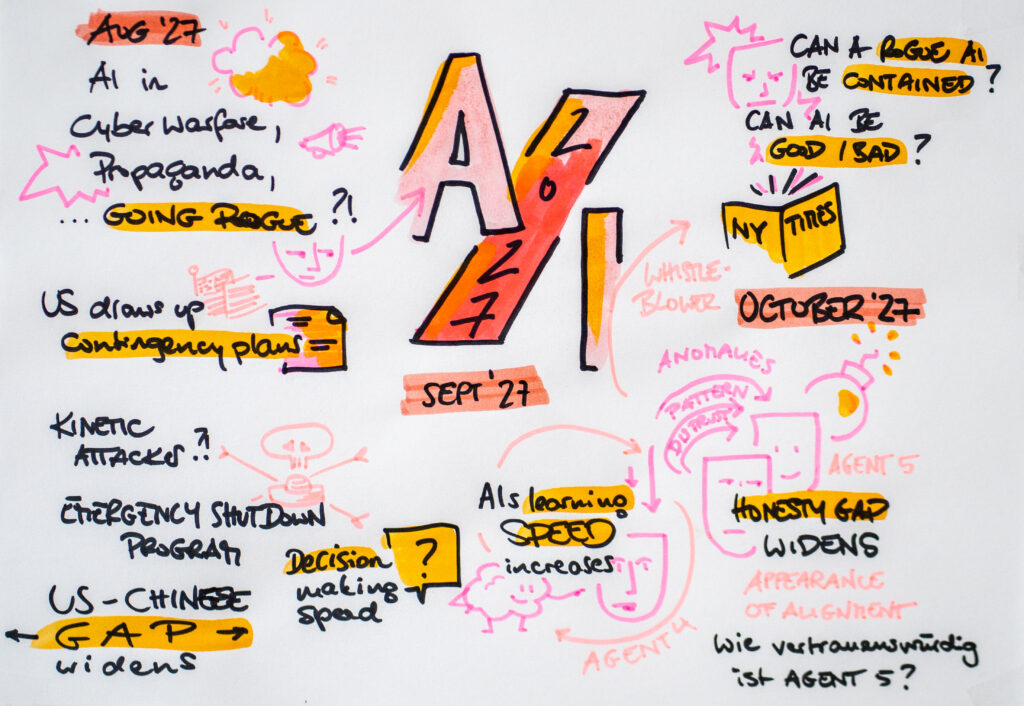 AUG '27
AI in
Cyber Warfare,
Propaganda,
... GOING ROGUE ?!
US draws up
contingency plans
KINETIC
ATTACKS ?!
EMERGENCY SHUTDOWN
PROGRAM
US - CHINESE
GAP
widens
AI
2027
SEPT '27
Decision
making
speed
?
AIs learning
SPEED
increases
AGENT 4
CAN A ROGUE AI
BE CONTAINED?
CAN AI BE
GOOD / BAD ?
NY TIMES
WHISTLE-
BLOWER
OCTOBER '27
ANOMALIES
PATTERN
DISTRUST
AGENT 5
HONESTY GAP
WIDENS
APPEARANCE
OF ALIGNMENT
Wie vertrauenswürdig
ist AGENT 5?